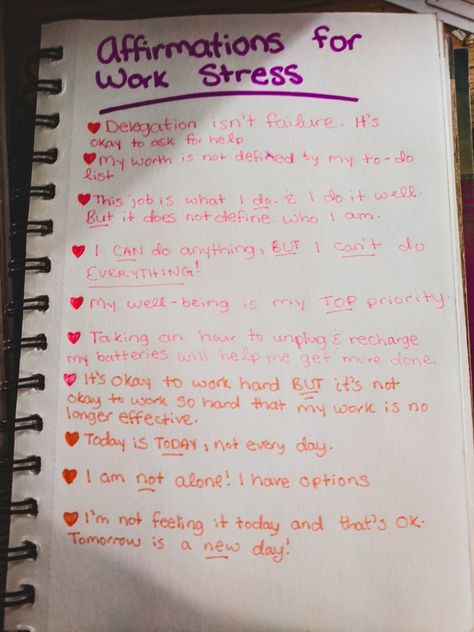 Affirmations for
Work Stress
♥ Delegation isn't failure. It's
okay to ask for help
♥ My worth is not defined by my to-do
list
♥ This job is what I do. & I do it well.
But it does not define who I am.
♥ I CAN do anything, BUT I can't do
EVERYTHING!
♥ My well-being is my TOP priority.
♥ Taking an hour to unplug & recharge
my batteries will help me get more done.
♥ It's okay to work hard BUT it's not
okay to work so hard that my work is no
longer effective.
♥ Today is TODAY, not every day.
♥ I am not alone! I have options
♥ I'm not feeling it today and that's OK.
Tomorrow is a new day!